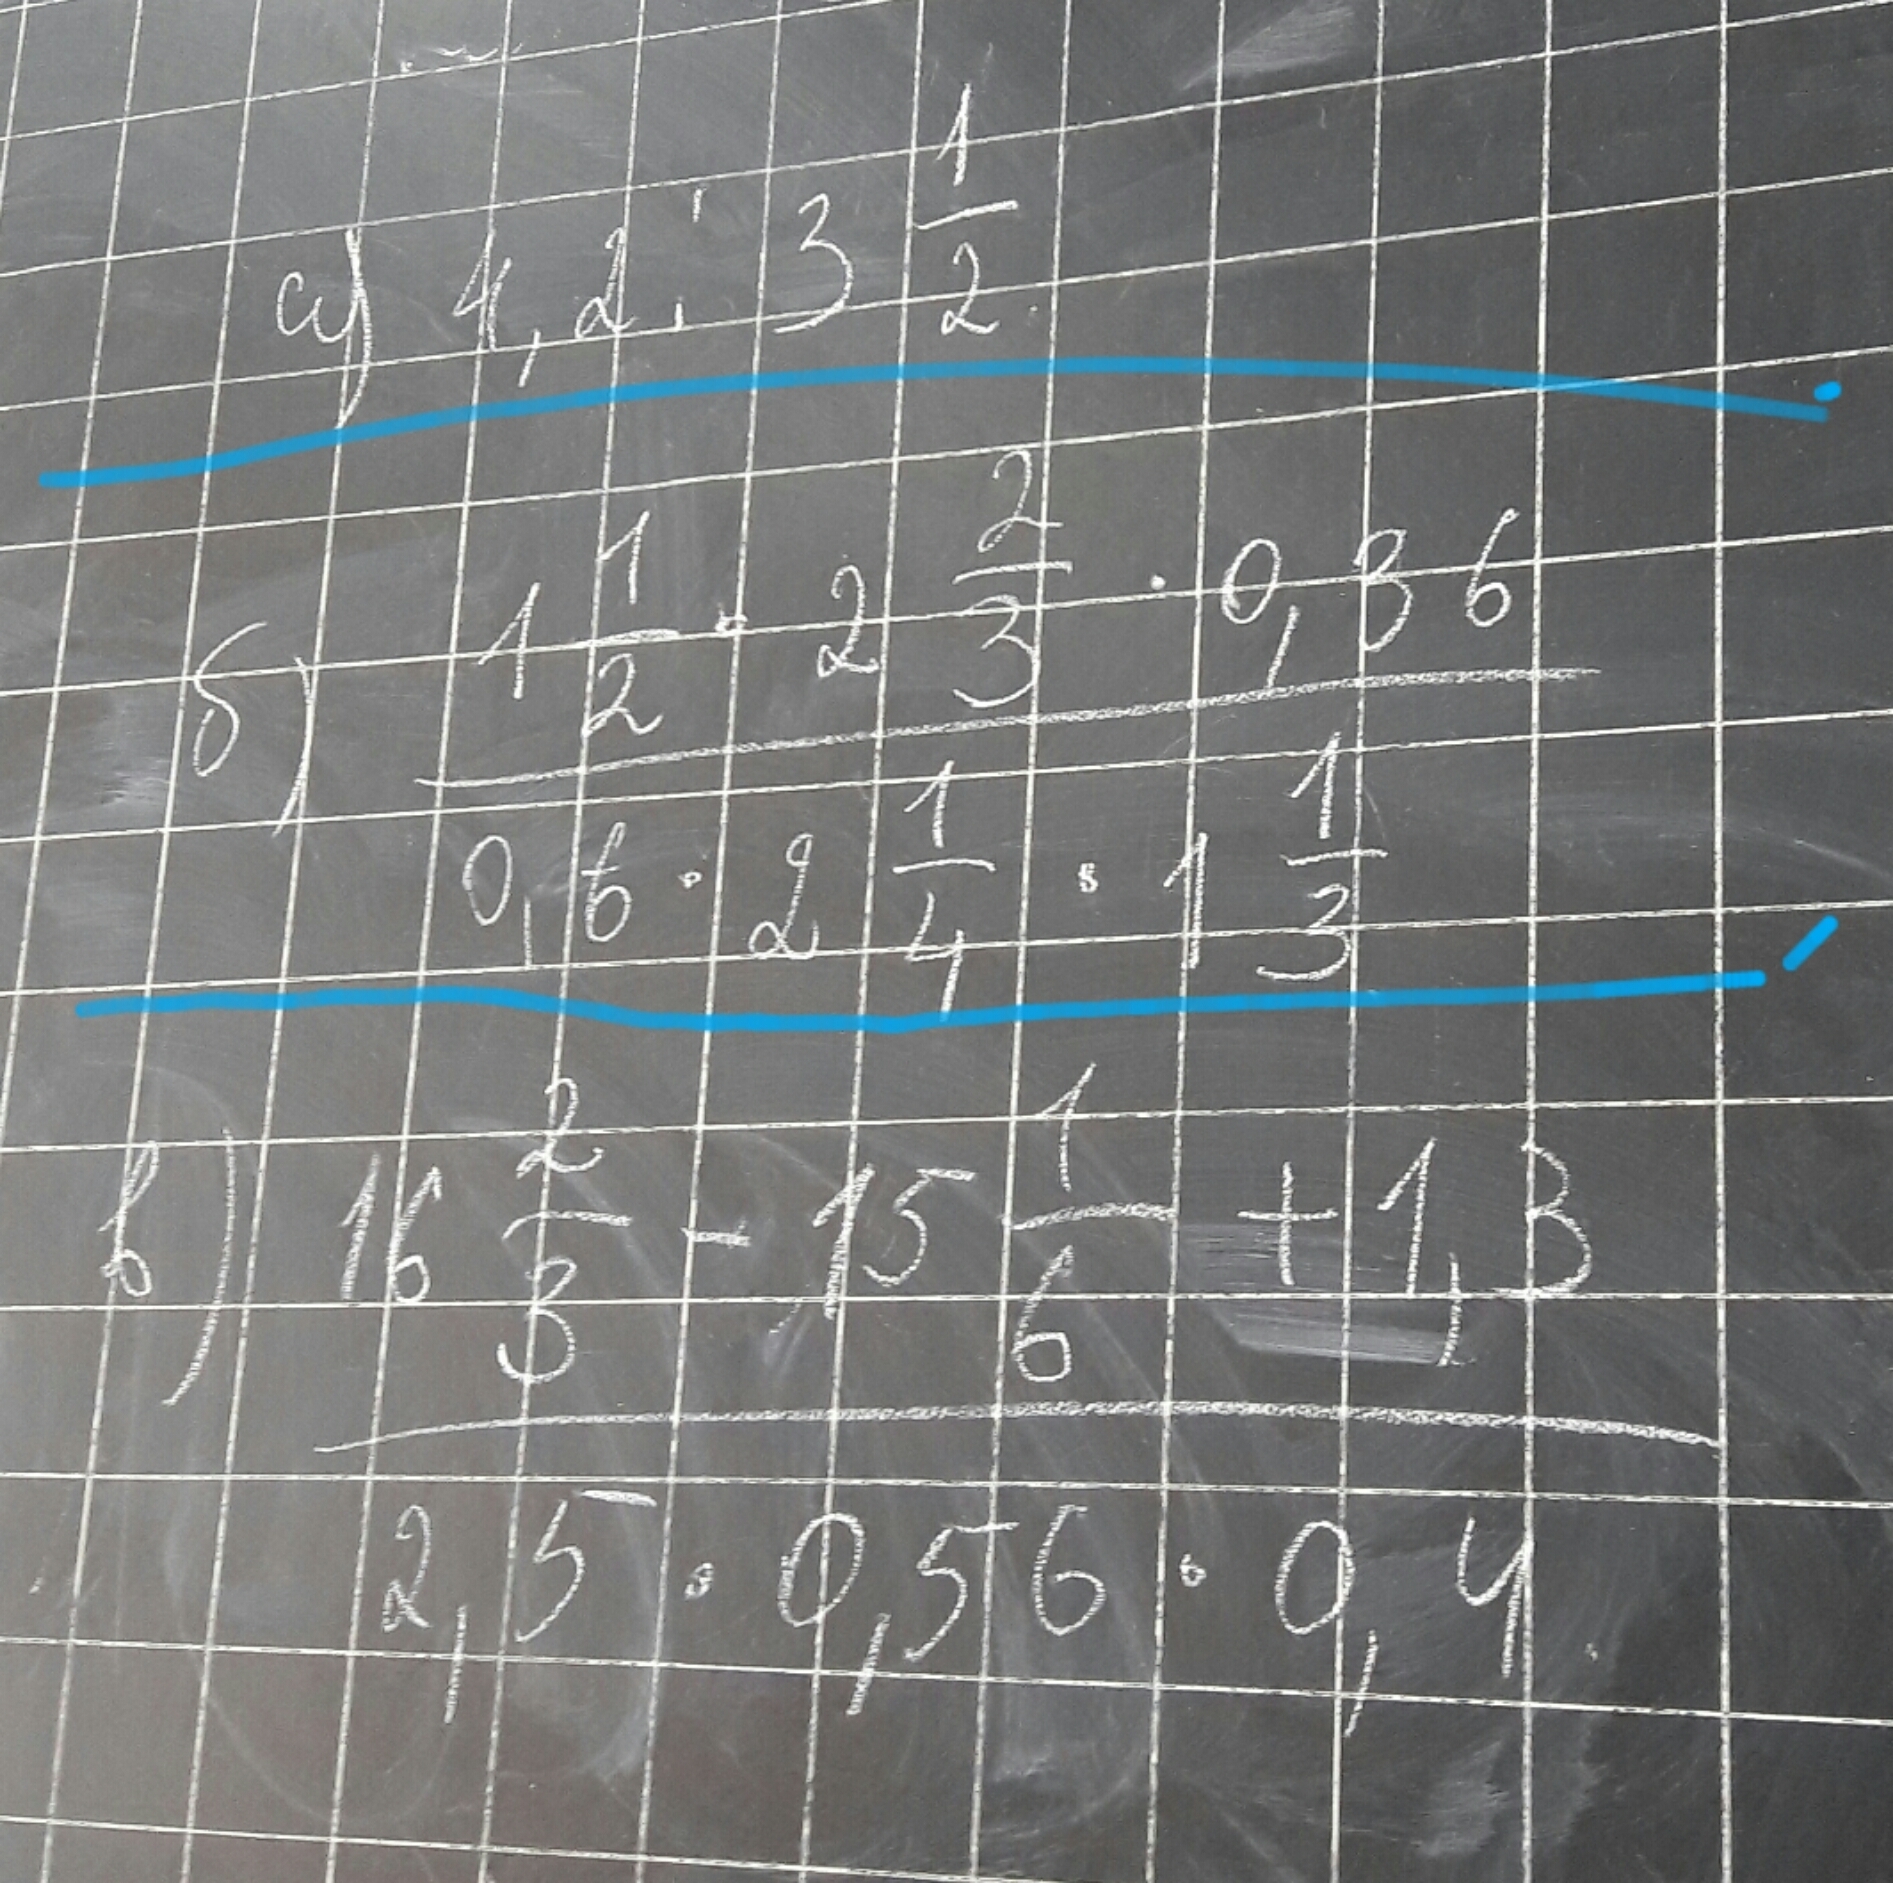 а) 4,2 : 3 1/2
б) 1 1/2 · 2 2/3 · 0,36
0,6 · 2 1/4 · 1 1/3
в) 16 2/3 - 15 1/6 + 1,3
2,5 · 0,56 · 0,4